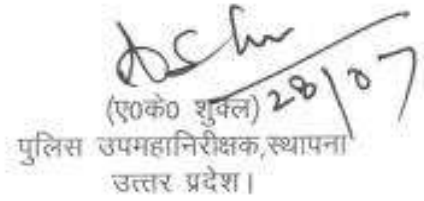 28/07
(ए0के0 शुक्ल)
पुलिस उपमहानिरीक्षक,स्थापना
उत्तर प्रदेश।